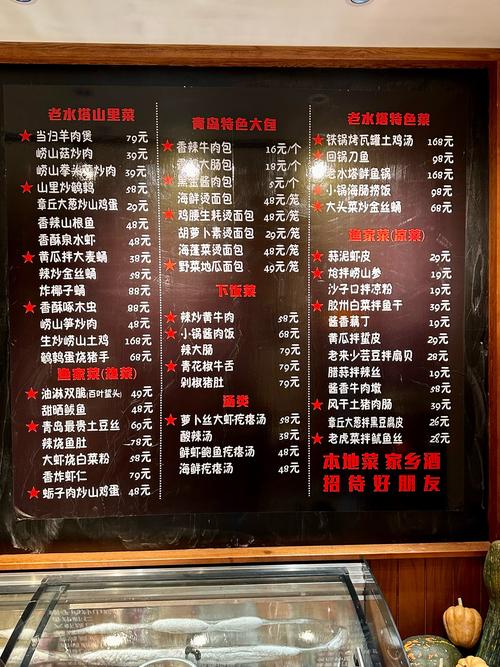 老水塔山里菜
★当归羊肉煲 79元
崂山菇炒肉 39元
崂山拳头菜炒肉 39元
★山里炒鹌鹑 58元
章丘大葱炒山鸡蛋 29元
香辣山根鱼 48元
香酥泉水虾 48元
★黄瓜拌大麦螨 38元
辣炒金丝螨 58元
炸椰子 88元
★香酥啄木虫 88元
崂山笋炒肉 48元
生炒崂山土鸡 168元
鹌鹑蛋烧猪手 68元
渔家菜(热菜)
★油淋双脆(百叶蜇头) 49元
甜晒鲅鱼 48元
★青岛最贵土豆丝 69元
辣烧鱼肚 78元
大虾烧白菜粉 58元
香炸虾仁 79元
★蛎子肉炒山鸡蛋 48元
青岛特色大包
★香辣牛肉包 16元/个
大肠包 18元/个
★黑金酱肉包 8元/个
海鲜烫面包 48元/笼
★鸡腰生蚝烫面包 48元/笼
胡萝卜素烫面包 29元/笼
海蓬菜烫面包 48元/笼
★野菜地瓜面包 49元/笼
下饭菜
★辣炒黄牛肉 58元
★小锅酱肉饭 68元
辣大肠 79元
★青花椒牛舌 79元
剁椒猪肚 79元
汤类
★萝卜丝大虾疙瘩汤 58元
酸辣汤 38元
鲜虾鲍鱼疙瘩汤 48元
海鲜疙瘩汤 48元
老水塔特色菜
★铁锅烤瓦罐土鸡汤 168元
★回锅刀鱼 98元
★老水塔鲜鱼锅 168元
★小锅海肠捞饭 98元
★大头菜炒金丝螨 68元
渔家菜(凉菜)
★蒜泥虾皮 29元
★炝拌崂山参 19元
沙子口拌凉粉 19元
★胶州白菜拌鱼干 39元
酱香藕丁 19元
黄瓜拌蜇皮 29元
老来少芸豆拌扇贝 28元
腊蒜拌辣丝 19元
酱香牛肉墩 58元
★风干土猪肉肠 39元
章丘大葱拌黑豆腐皮 26元
★老虎菜拌鱿鱼丝 26元
本地菜 家乡酒
招待好朋友